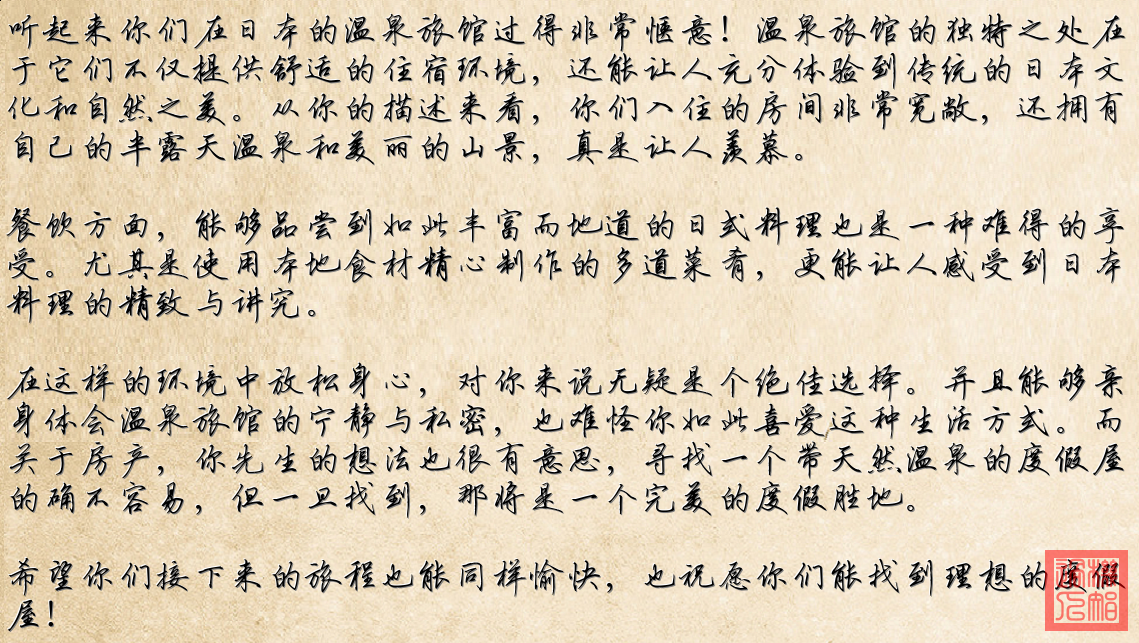 听起来你们在日本的温泉旅馆过得非常惬意！温泉旅馆的独特之处在
于它们不仅提供舒适的住宿环境，还能让人充分体验到传统的日本文
化和自然之美。从你的描述来看，你们入住的房间非常宽敞，还拥有
自己的半露天温泉和美丽的山景，真是让人羡慕。
餐饮方面，能够品尝到如此丰富而地道的日式料理也是一种难得的享
受。尤其是使用本地食材精心制作的多道菜肴，更能让人感受到日本
料理的精致与讲究。
在这样的环境中放松身心，对你来说无疑是个绝佳选择。并且能够亲
身体会温泉旅馆的宁静与私密，也难怪你如此喜爱这种生活方式。而
关于房产，你先生的想法也很有意思，寻找一个带天然温泉的度假屋
的确不容易，但一旦找到，那将是一个完美的度假胜地。
希望你们接下来的旅程也能同样愉快，也祝愿你们能找到理想的度假
屋！